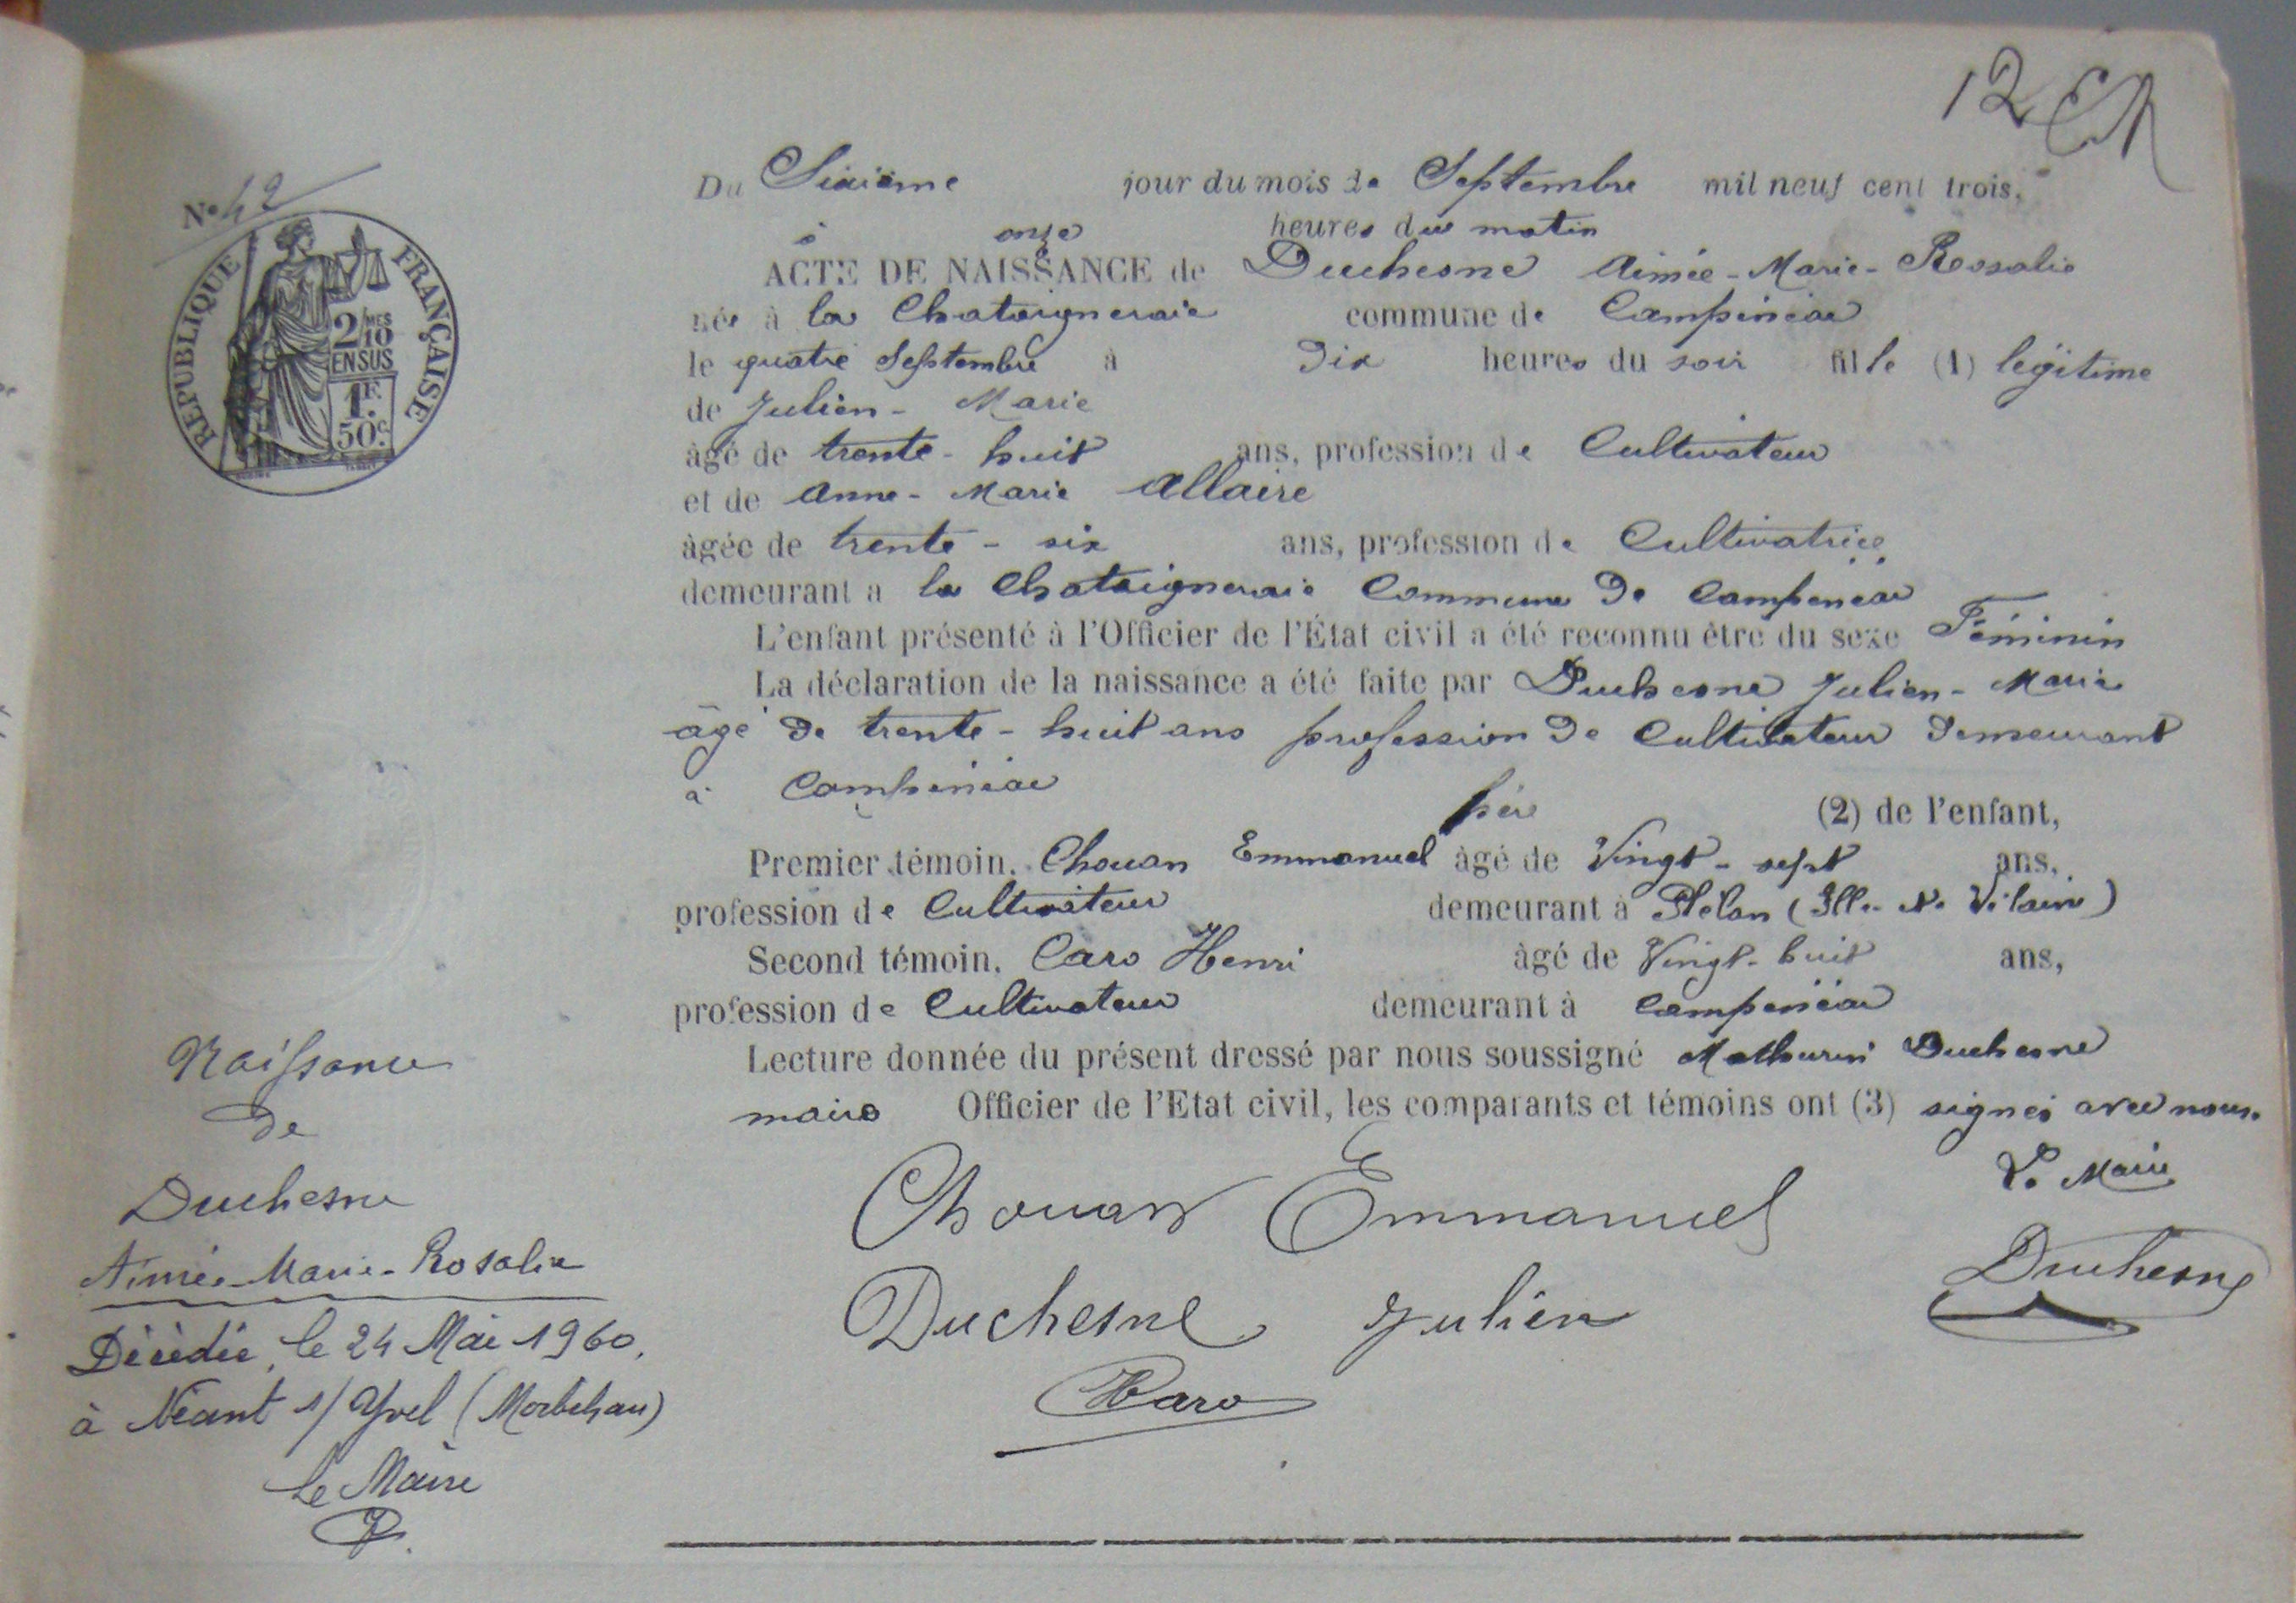 12
N° 42
RÉPUBLIQUE FRANÇAISE
2/10 MES
EN SUS
1F.
50c.
Du Sixième jour du mois de Septembre mil neuf cent trois,
à onze heures du matin
ACTE DE NAISSANCE de Duchesne Aimée-Marie-Rosalie
née à la Chataigneraie commune de Campénéac
le quatre Septembre à Dix heures du soir fille (1) légitime
de Julien-Marie
âgé de trente-huit ans, profession de Cultivateur
et de Anne-Marie Allaire
âgée de trente-six ans, profession de Cultivatrice
demeurant a la Chataigneraie Commune De Campénéac
L'enfant présenté à l'Officier de l'État civil a été reconnu être du sexe Féminin
La déclaration de la naissance a été faite par Duchesne Julien-Marie
âgé De trente-huit ans profession De Cultivateur Demeurant
à Campénéac
père (2) de l'enfant,
Premier témoin. Chouan Emmanuel âgé de Vingt-sept ans,
profession de Cultivateur demeurant à Plélan (Ille-et-Vilaine)
Second témoin. Caro Henri âgé de Vingt-huit ans,
profession de Cultivateur demeurant à Campénéac
Lecture donnée du présent dressé par nous soussigné Mathurin Duchesne
maire Officier de l'Etat civil, les comparants et témoins ont (3) signés avec nous.
Le Maire
Chouan Emmanuel
Duchesne
Duchesne Julien
HCaro
Naissance
De
Duchesne
Aimée-Marie-Rosalie
Décédée, le 24 Mai 1960,
à Néant s/ Yvel (Morbihan)
Le Maire